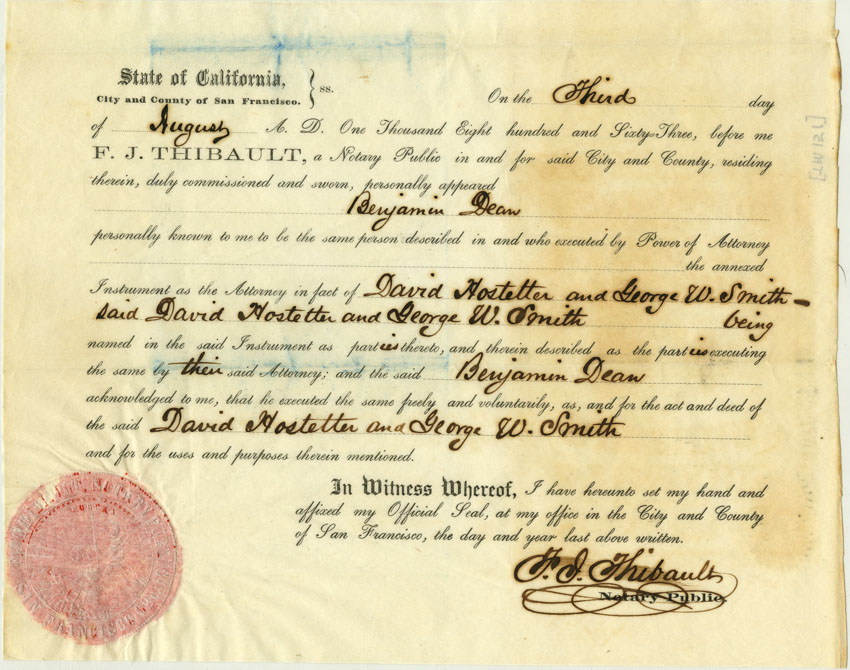 State of California, } ss.
City and County of San Francisco.
On the Third day
of August A. D. One Thousand Eight hundred and Sixty-Three, before me
F. J. THIBAULT, a Notary Public in and for said City and County, residing
therein, duly commissioned and sworn, personally appeared
Benjamin Dean
personally known to me to be the same person described in and who executed by Power of Attorney
the annexed
Instrument as the Attorney in fact of David Hostetter and George W. Smith –
said David Hostetter and George W. Smith being
named in the said Instrument as parties thereto, and therein described as the parties executing
the same by their said Attorney; and the said Benjamin Dean
acknowledged to me, that he executed the same freely and voluntarily, as, and for the act and deed of
the said David Hostetter and George W. Smith
and for the uses and purposes therein mentioned.
In Witness Whereof, I have hereunto set my hand and
affixed my Official Seal, at my office in the City and County
of San Francisco, the day and year last above written.
F. J. Thibault
Notary Public.